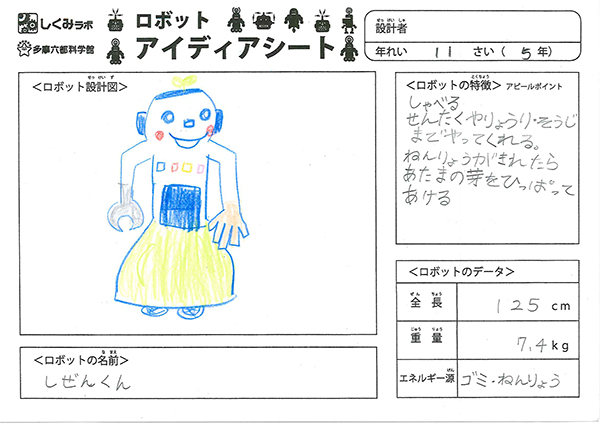 しくみラボ
多摩六都科学館
ロボット
アイディアシート
設計者
年れい 11 さい ( 5 年)
<ロボット設計図>
<ロボットの特徴> アピールポイント
しゃべる
せんたくやりょうり・そうじ
までやってくれる。
ねんりょうがきれたら
あたまの芽をひっぱって
あける
<ロボットのデータ>
全長 125 cm
重量 7.4 kg
エネルギー源 ゴミ・ねんりょう
<ロボットの名前>
しぜんくん